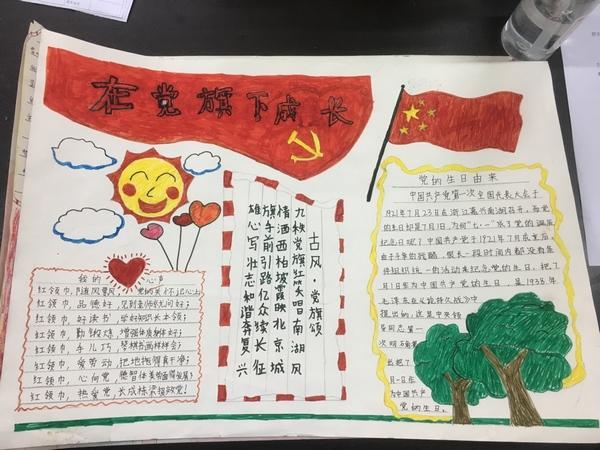 在党旗下成长
我的心声
红领巾,随风飘,
红领巾,品德好,见到老师先问好;
红领巾,好读书,学好知识长本领;
红领巾,勤锻炼,增强体质身体好;
红领巾,手儿巧,琴棋书画样样会;
红领巾,爱劳动,把地拖得真干净;
红领巾,心向党,德智体美劳
红领巾,热爱党,长成栋梁报效党!
古风·党旗颂
九秩党旗红笑唱南湖风
情洒西柏坡霞映北京城
旗手前引路亿众续长征
雄心写壮志和谐奔复兴
党的生日由来
中国共产党第一次全国代表大会于
1921年7月23日在浙江嘉
的生日却是7月1日,为何"七·一"成了党的诞辰
纪念日呢?中国共产党于1921年7月成立后,
由于斗争的残酷,很长一段时间内都没有条
件组织统一的活动来纪念党的生日。把7
月1日作为中国共产党的生日,是1938年
毛泽东在《论持久战》中
提出的。这是中央领
导同志第一
次明确
出把7
月一日作
为中国共产
党的生日。